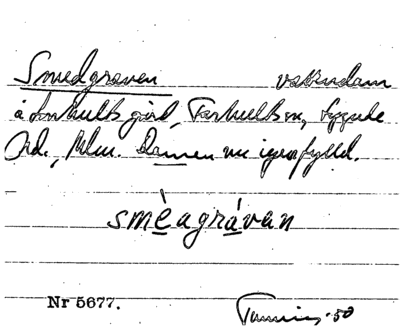 Smedgraven vattendam
å Farhults gård, Farhults sn, Luggude
hd., Mlm. Dammen nu igenfylld.
smèagrávan
Nr 5677.
-50